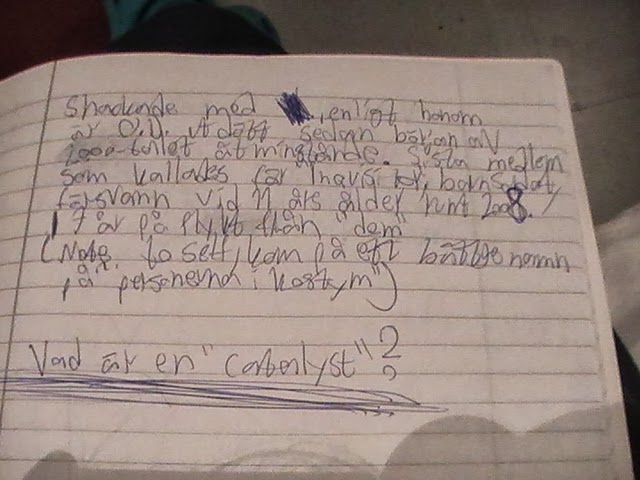 Shackande med , enligt honom
är O.U. utdött sedan början av
2000-talet åtminstonde. Sista medlem
som kallades för "navigatör", barnsoldat,
försvann vid 11 års ålder runt 2008.
17 år på flykt från "dem"
(Note to self, kom på ett bättre namn
på "personerna i kostym")
Vad är en "catalyst"?